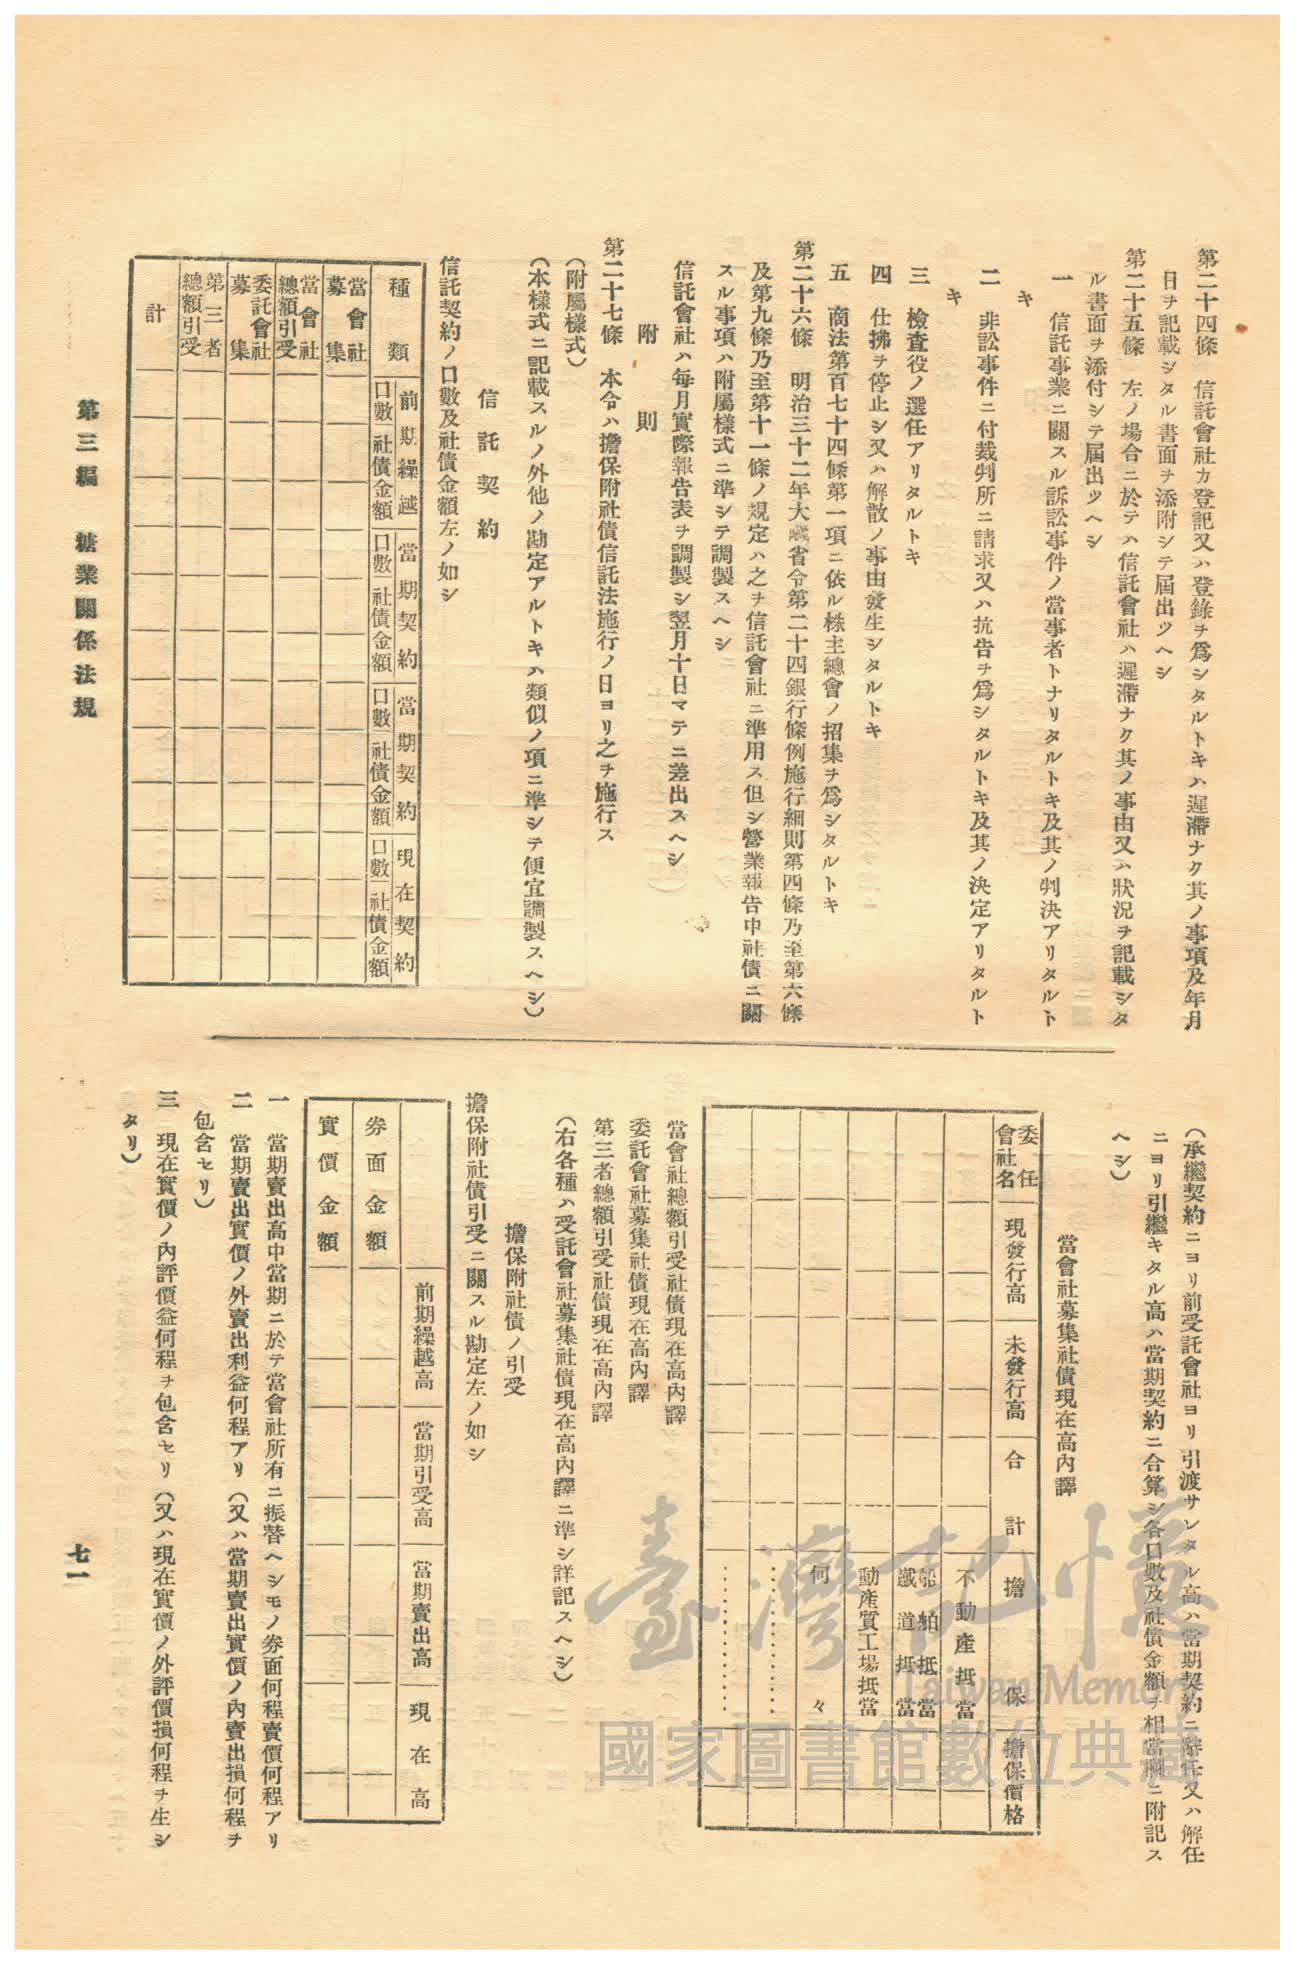 第二十四條　信託會社カ登記又ハ登錄ヲ爲シタルトキハ遲滯ナク其ノ事項及年月
日ヲ記載シタル書面ヲ添附シテ屆出ツヘシ
第二十五條　左ノ場合ニ於テハ信託會社ハ遲滯ナク其ノ事由又ハ狀況ヲ記載シタ
ル書面ヲ添付シテ屆出ツヘシ
一　信託事業ニ關スル訴訟事件ノ當事者トナリタルトキ及其ノ判決アリタルト
キ
二　非訟事件ニ付裁判所ニ請求又ハ抗告ヲ爲シタルトキ及其ノ決定アリタルト
キ
三　檢査役ノ選任アリタルトキ
四　仕拂ヲ停止シ又ハ解散ノ事由發生シタルトキ
五　商法第百七十四條第一項ニ依ル株主總會ノ招集ヲ爲シタルトキ
第二十六條　明治三十二年大藏省令第二十四銀行條例施行細則第四條乃至第六條
及第九條乃至第十一條ノ規定ハ之ヲ信託會社ニ準用ス但シ營業報告中社債ニ關
スル事項ハ附屬樣式ニ準シテ調製スヘシ
信託會社ハ每月實際報告表ヲ調製シ翌月十日マテニ差出スヘシ
附　則
第二十七條　本令ハ擔保附社債信託法施行ノ日ヨリ之ヲ施行ス
（附屬樣式）
（本樣式ニ記載スルノ外他ノ勘定アルトキハ類似ノ項ニ準シテ便宜調製スヘシ）
信託契約
信託契約ノ口數及社債金額左ノ如シ
種類　前期繰越　當期契約　當期契約　現在契約
口數　社債金額　口數　社債金額　口數　社債金額　口數　社債金額
當會社募集
當會社總額引受
委託會社募集
第三者總額引受
計
第三編　糖業關係法規
（承繼契約ニヨリ前受託會社ヨリ引渡サレタル高ハ當期契約ニ辭任又ハ解任
ニヨリ引繼キタル高ハ當期契約ニ合算シ各口數及社債金額ヲ相當欄ニ附記ス
ヘシ）
當會社募集社債現在高內譯
委任會社名　現發行高　未發行高　合計　擔保　擔保價格
不動產抵當
船舶抵當
鐵道抵當
動產質工場抵當
何々
…………
…………
當會社總額引受社債現在高內譯
委託會社募集社債現在高內譯
第三者總額引受社債現在高內譯
（右各種ハ受託會社募集社債現在高內譯ニ準シ詳記スヘシ）
擔保附社債ノ引受
擔保附社債引受ニ關スル勘定左ノ如シ
前期繰越高　當期引受高　當期賣出高　現在高
券面金額
實價金額
一　當期賣出高中當期ニ於テ當會社所有ニ振替ヘシモノ券面何程賣價何程アリ
二　當期賣出實價ノ外賣出利益何程アリ（又ハ當期賣出實價ノ內賣出損何程ヲ
包含セリ）
三　現在實價ノ內評價益何程ヲ包含セリ（又ハ現在實價ノ外評價損何程ヲ生シ
タリ）
七一
臺灣記憶
Taiwan Memory
國家圖書館數位典藏